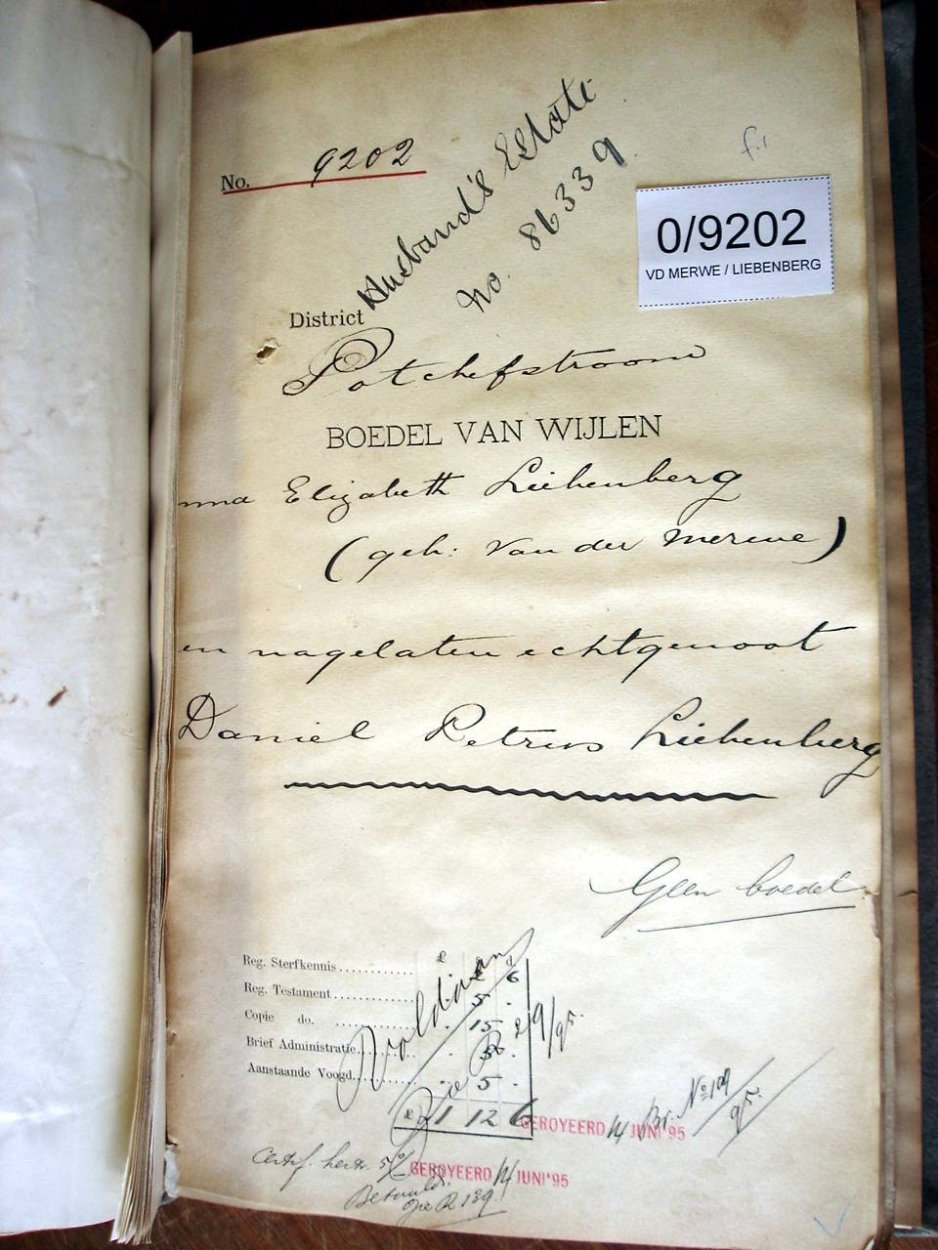 No. 9202
Husband's Estate
No. 86339
f.1
0/9202
VD MERWE / LIEBENBERG
District
Potchefstroom
BOEDEL VAN WIJLEN
nna Elizabeth Liebenberg
(geb: Van der Merwe)
en nagelaten echtgenoot
Daniel Petrus Liebenberg
Geen boedel
£ s d
Reg. Sterfkennis 2 6
Reg. Testament 5 -
Copie do. 15 -
Brief Administratie 5 -
Aanstaande Voogd 5 -
£ 1 12 6
Voldaan
2/9/95.
GEROYEERD 14 JUNI '95
Br. No 109/95.
Certif. 5/
GEROYEERD 14 JUNI '95
Betaald
op R 139